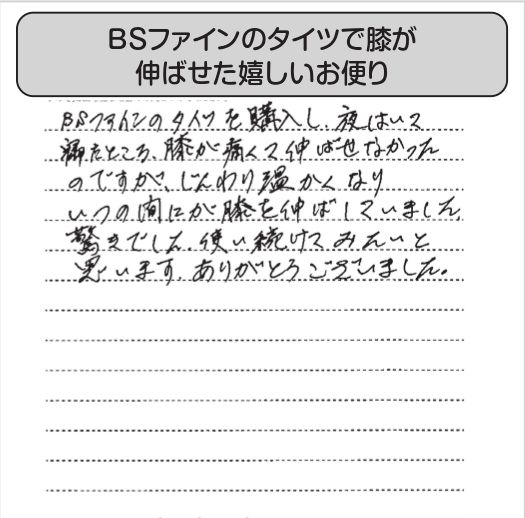 BSファインのタイツで膝が
伸ばせた嬉しいお便り
BSファインのタイツを購入し、夜はいて
寝たところ、膝が痛くて伸ばせなかった
のですが、じんわり温かくなり
いつの間にか膝を伸ばしていました。
驚きでした。使い続けてみたいと
思います。ありがとうございました。